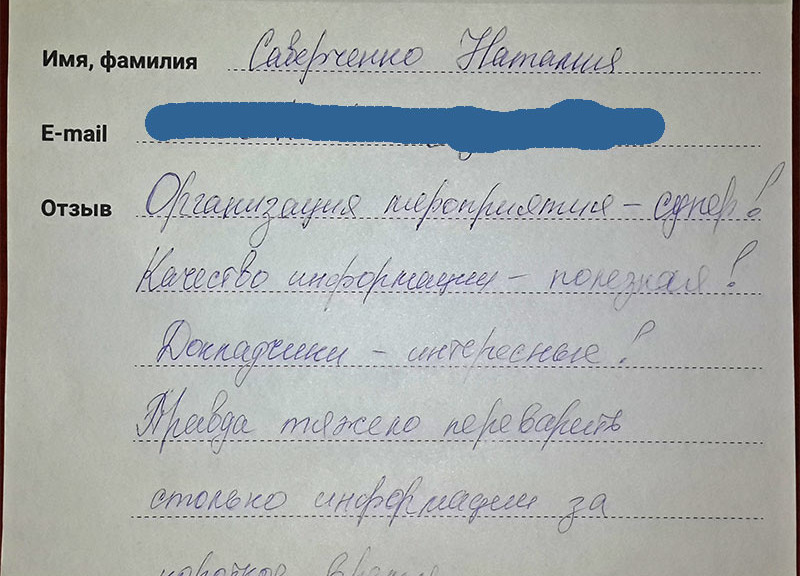 Имя, фамилия Саверченко Наталия
E-mail
Отзыв Организация мероприятия – супер!
Качество информации – полезная!
Докладчики – интересные!
Правда тяжело переварить
столько информации за
короткое время